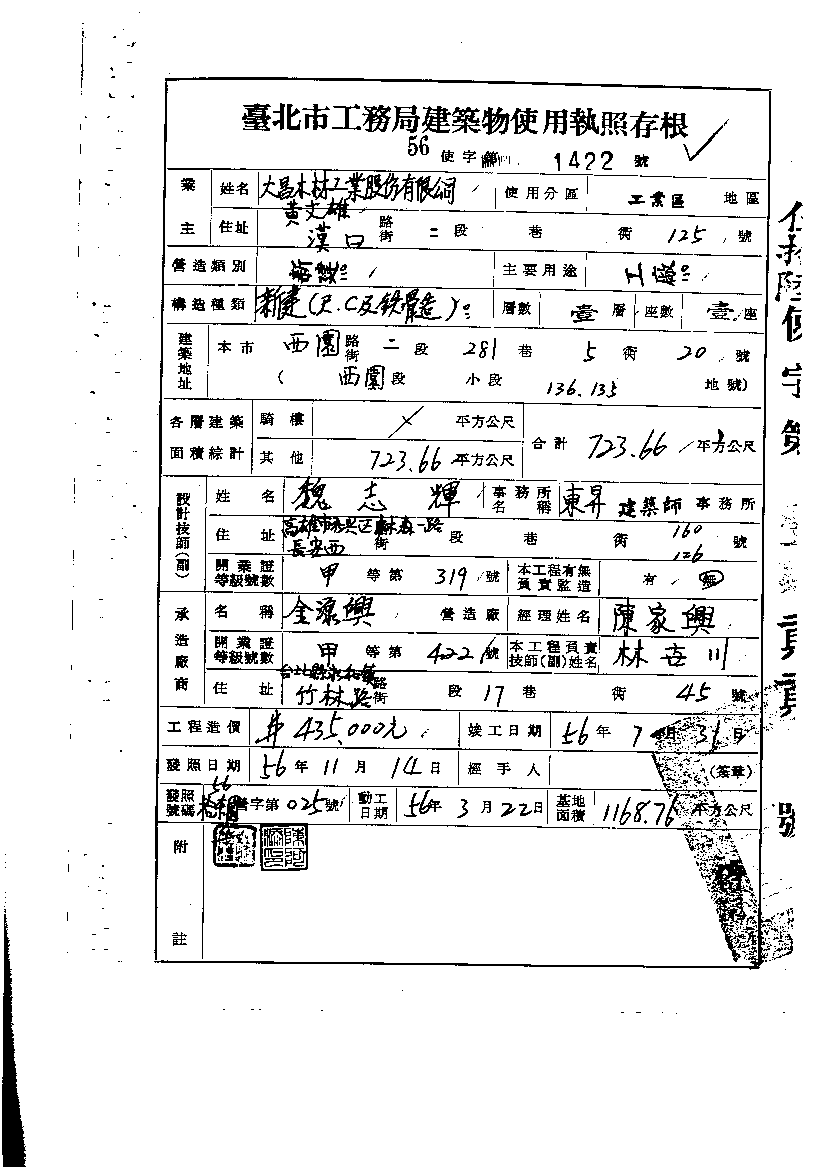 臺北市工務局建築物使用執照存根
56 使字第 1422 號
業主 姓名 大昌木材工業股份有限公司 黃文雄 使用分區 工業區 地區
住址 漢口 路街 二 段 巷 衖 125 號
營造類別 主要用途
構造種類 新建(R.C及鉄骨造) 層數 壹 層 座數 壹 座
建築地址 本市 西園 路街 二 段 281 巷 5 衖 20 號
( 西園 段 小段 136.135 地號)
各層建築面積綜計 騎樓 平方公尺 合計 723.66 平方公尺
其他 723.66 平方公尺
設計技師(副) 姓名 魏志輝 事務所名稱 東昇 建築師 事務所
住址 長安西 路街 段 巷 衖 160 126 號
開業證等級號數 甲 等第 319 號 本工程有無負責監造 有 無
承造廠商 名稱 金源興 營造廠 經理姓名 陳家興
開業證等級號數 甲 等第 422 號 本工程負責技師(副)姓名 林 川
住址 竹林路 路街 段 17 巷 衖 45 號
工程造價 435,000元 竣工日期 56 年 7 月 31 日
發照日期 56 年 11 月 14 日 經手人 (簽章)
發照號碼 56 營字第 025 號 動工日期 56 年 3 月 22 日 基地面積 1168.76 平方公尺
附註
使字第
號